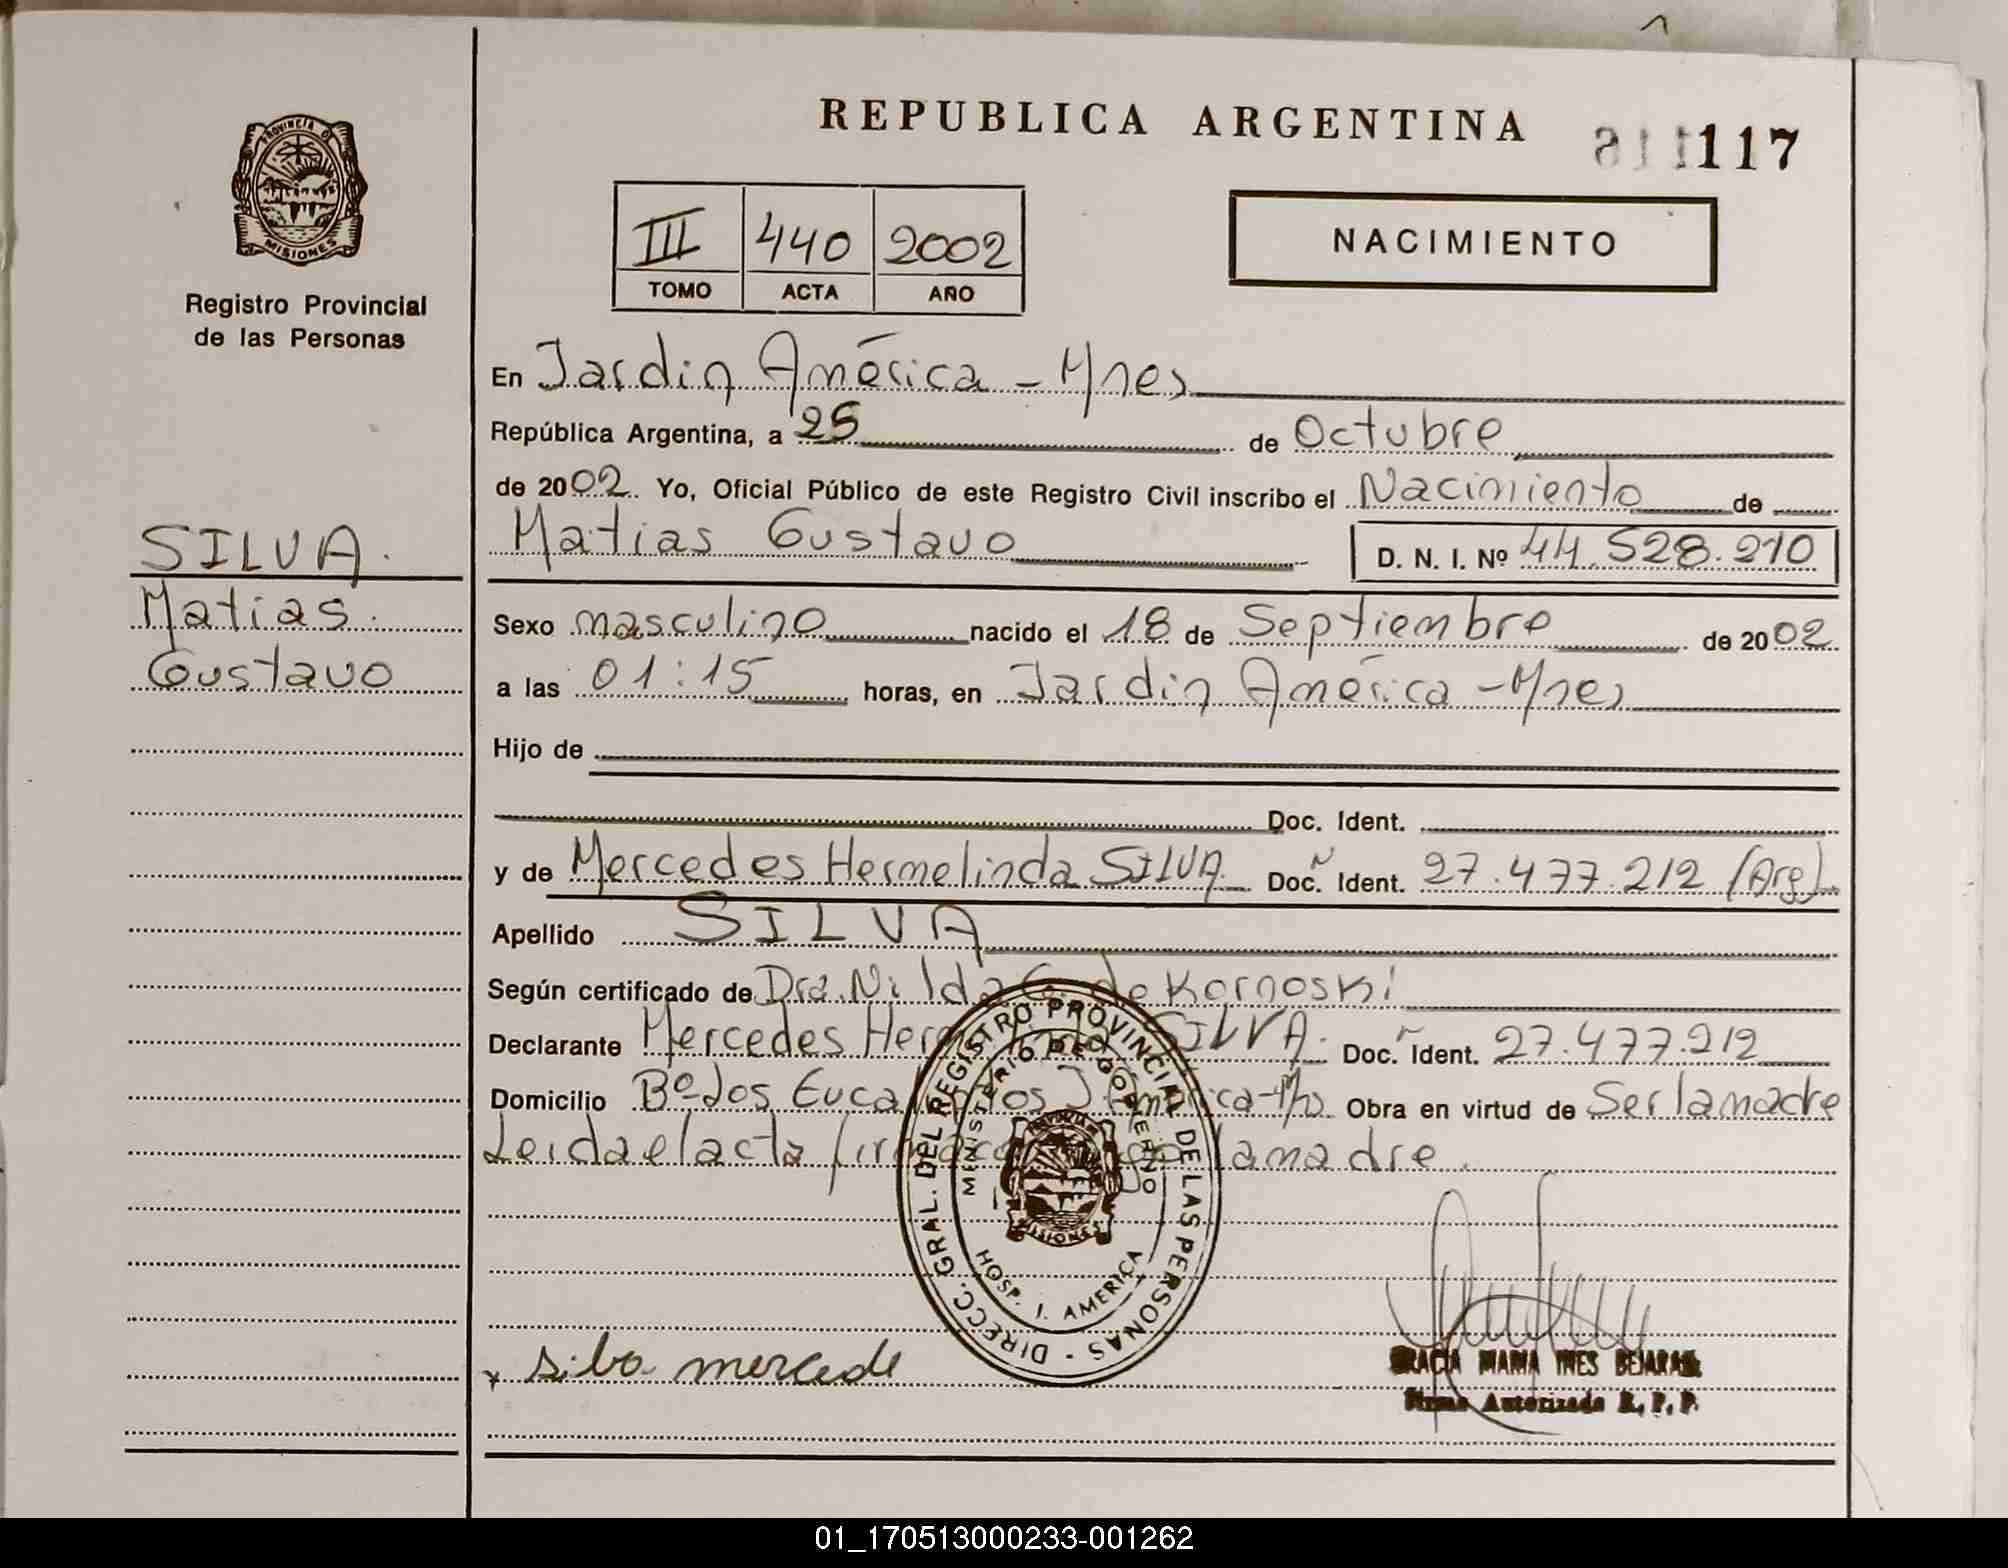 REPUBLICA ARGENTINA
117
PROVINCIA DE
MISIONES
Registro Provincial
de las Personas
III 440 2002
TOMO ACTA AÑO
NACIMIENTO
En Jardin América - Mnes
República Argentina, a 25 de Octubre
de 2002. Yo, Oficial Público de este Registro Civil inscribo el Nacimiento de
Matias Gustavo D. N. I. Nº 44.528.210
SILVA.
Matias.
Gustavo
Sexo masculino nacido el 18 de Septiembre de 2002
a las 01:15 horas, en Jardin América - Mnes
Hijo de
Doc. Ident.
y de Mercedes Hermelinda SILVA Doc. Ident. 27.477.212 (Arg).
Apellido SILVA
Según certificado de Dra. Nilda de Kornoski
Declarante Mercedes Hermelinda SILVA. Doc. Ident. 27.477.212
Domicilio Bº Los Eucaliptos J. América - Mnes Obra en virtud de Ser la madre
Leida el acta la madre.
DIRECC. GRAL. DEL REGISTRO PROVINCIAL DE LAS PERSONAS -
MINISTERIO DE GOBIERNO
MISIONES
HOSP. J. AMERICA
silva mercede
GRACIA MARIA INES BEJARANO
Firma Autorizada R. P. P.
01_170513000233-001262